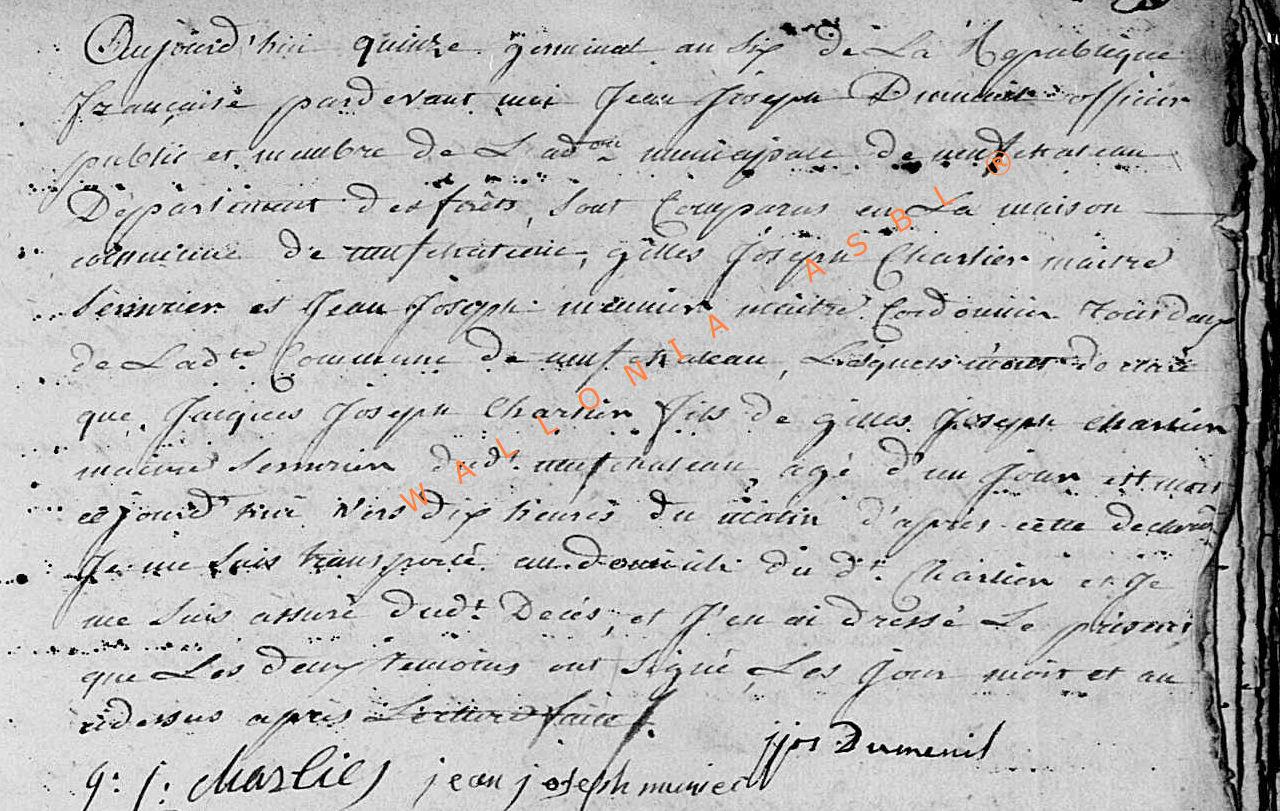 Aujourd'hui quinze germinal an six de La République
française pardevant moi Jean Joseph Dumenil officier
public et membre de L'ad.on municipale de neufchateau
Département des forêts, sont Comparus en La maison
commune de neufchateau, gilles Joseph Charlier maitre
Serrurier et Jean Joseph meunier maitre Cordonnier Tous deux
de Ladte Commune de neufchateau, Lesquels m'ont declaré
que Jacques Joseph Charlier fils de gilles Joseph Charlier
maitre Serrurier dudt neufchateau agé d'un Jour est mort
cejourd'hui vers dix heures du matin d'après cette declaron
Je me suis transporté au domicile du dt Charlier et Je
me suis assuré dudt Decès, et J'en ai dressé Le présent
que Les deux temoins ont signé, Les Jour mois et an
cidessus après Lecture faite
jjos Dumenil
g: j: charlier jean joseph munier
WALLONIA ASBL ®